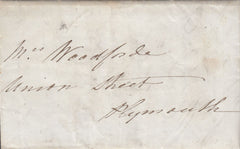 Mrs Woodforde
Union Street
Plymouth